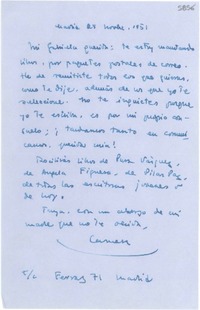 5856
Madrid 28 Novbre. 1951
Mi Gabriela querida: te estoy mandando
libros, por paquetes postales de correo.
He de remitirte todos los que quieras,
como te dije. además de los que yo te
seleccione. No te inquietes porque
yo te escriba, es por mi propio
; ¡ tardamos tanto en comuni
carnos, querida mía!
Recibirás libros de Pura Vázquez,
de Angela Figuera, de Pilar Paz,
de todas las escritoras jóvenes
de hoy.
Tuya. con un abrazo de mi
madre que no te olvida,
Carmen
S/c Ferraz 71 Madrid